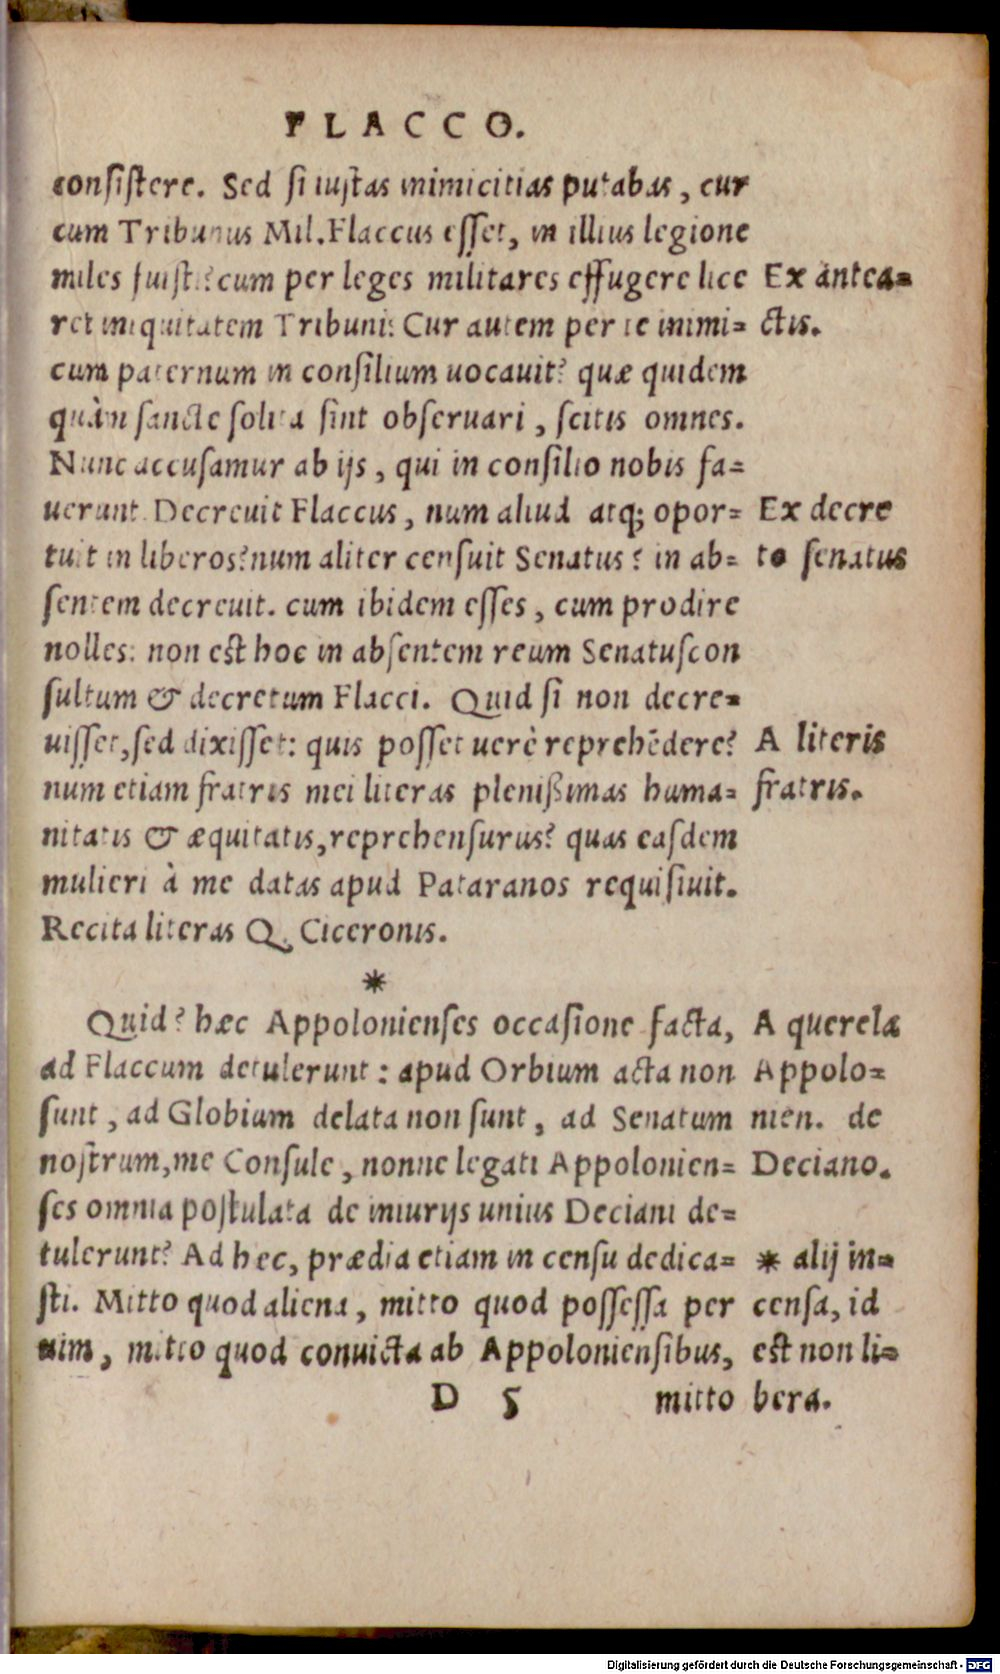 FLACCO.
consistere. Sed si iustas inimicitias putabas, cur
cum Tribunus Mil. Flaccus esset, in illius legione
miles fuisti? cum per leges militares effugere lice
ret iniquitatem Tribuni: Cur autem per te inimi=
cum paternum in consilium uocauit? quæ quidem
quàm sancte solita sint obseruari, scitis omnes.
Nunc accusamur ab ijs, qui in consilio nobis fa=
uerunt. Decreuit Flaccus, num aliud atq; opor=
tuit in liberos? num aliter censuit Senatus? in ab=
sentem decreuit. cum ibidem esses, cum prodire
nolles: non est hoc in absentem reum Senatuscon
sultum & decretum Flacci. Quid si non decre=
uisset, sed dixisset: quis posset uerè reprehēdere?
num etiam fratris mei literas plenißimas huma=
nitatis & æquitatis, reprehensurus? quas easdem
mulieri à me datas apud Pataranos requisiuit.
Recita literas Q. Ciceronis.
*
Quid? hæc Appolonienses occasione facta,
ad Flaccum detulerunt: apud Orbium acta non
sunt, ad Globium delata non sunt, ad Senatum
nostrum, me Consule, nonne legati Appolonien=
ses omnia postulata de iniurijs unius Deciani de=
tulerunt? Ad hec, prædia etiam in censu dedica=
sti. Mitto quod aliena, mitto quod possessa per
uim, mitto quod conuicta ab Appoloniensibus,
D 5 mitto
Ex antea=
ctis.
Ex decre
to senatus
A literis
fratris.
A querela
Appolo=
nien. de
Deciano.
* alij in=
censa, id
est non li=
bera.
Digitalisierung gefördert durch die Deutsche Forschungsgemeinschaft - DFG